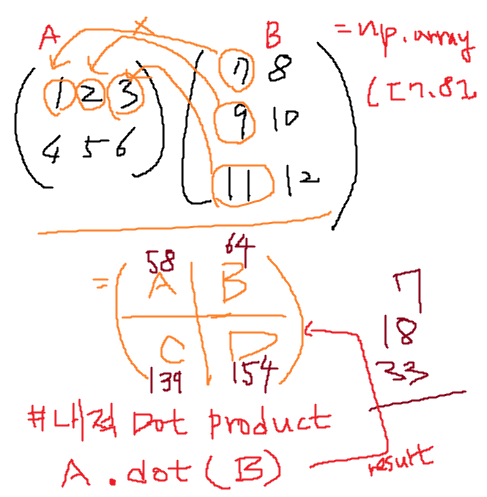 A × B = np.array
([7.82
1 2 3 7 8
4 5 6 9 10
11 12
58 64
= A B
C D
139 154
7
18
33
#내적 Dot product
A.dot(B) result